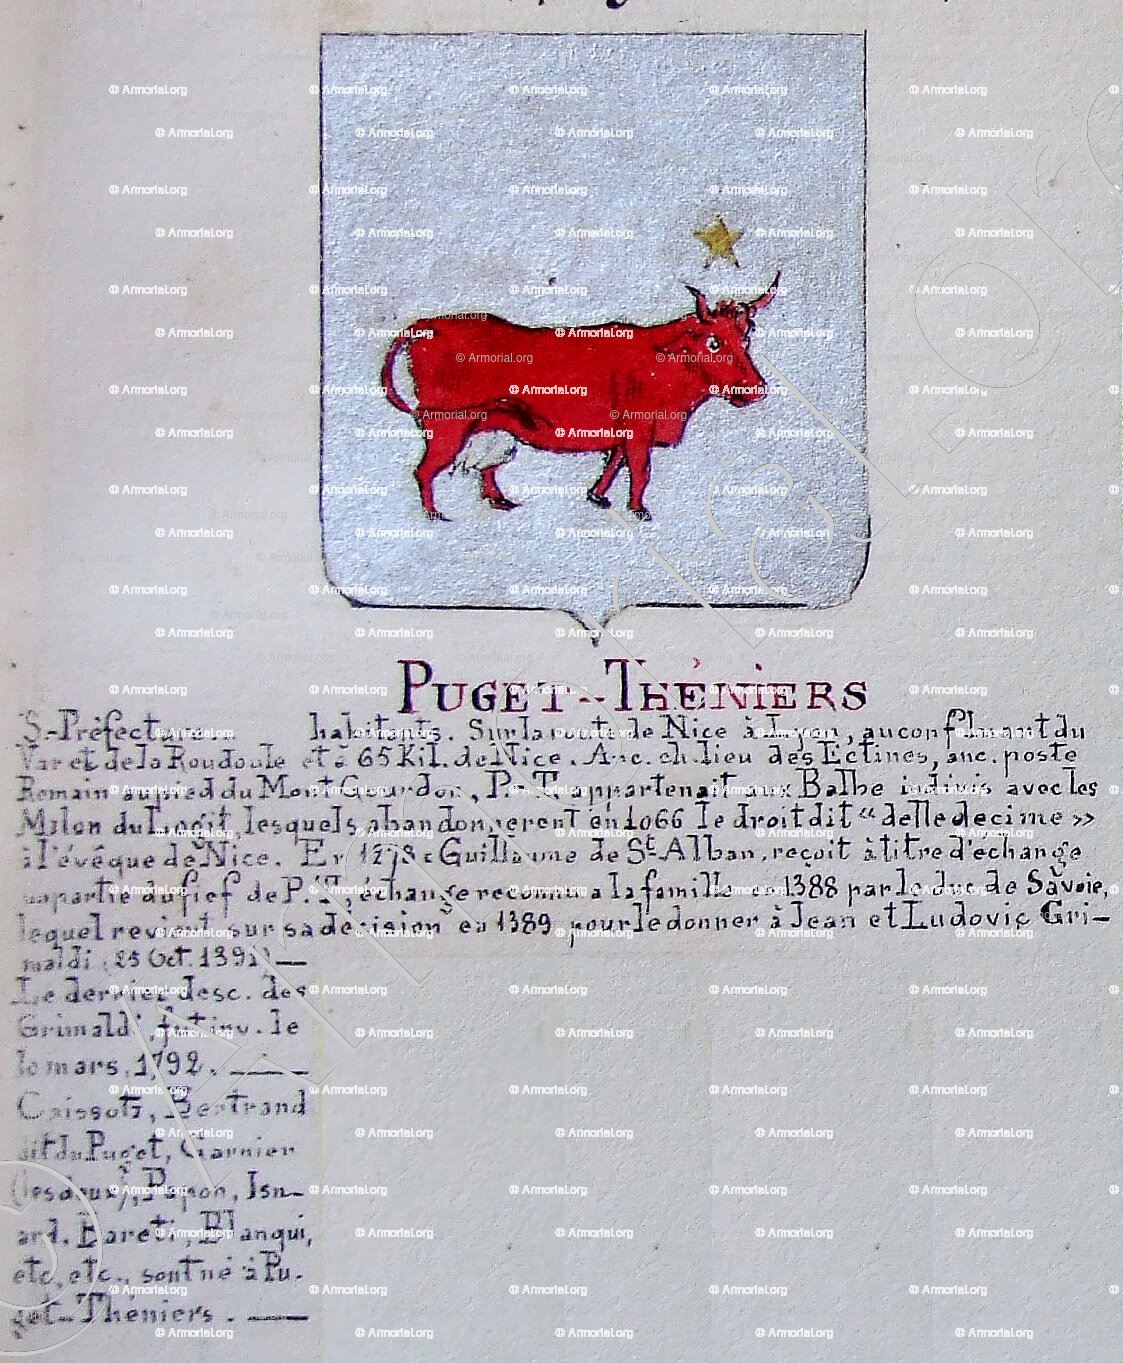 PUGET-THÉNIERS
S.-Préfecture habitants. Sur la route de Nice à Lyon, au confluent du
Var et de la Roudoule et à 65 Kil. de Nice. Anc. ch. lieu des Ectines, anc. poste
Romain au pied du Mont Gourdon, P.-T. appartenait aux Balbe indivis avec les
Milon du Puget, lesquels abandonnèrent en 1066 le droit dit "delle decime"
à l'évêque de Nice. En Guillaume de St. Alban, reçoit à titre d'échange
partie du fief de P.T., échange reconnu a la famille en 1388 par le duc de Savoie,
lequel revint sur sa décision en 1389 pour le donner à Jean et Ludovic Gri-
maldi (25 Oct. ) —
Le dernier desc. des
Grimaldi, fut inv. le
10 mars, 1792. —
Caissotti, Bertrand
dit du Puget, Garnier
(les deux), Papon, Isn-
ard, Bareti, Blanqui,
etc, etc., sont né à Pu-
get-Théniers. —
© Armorial.org